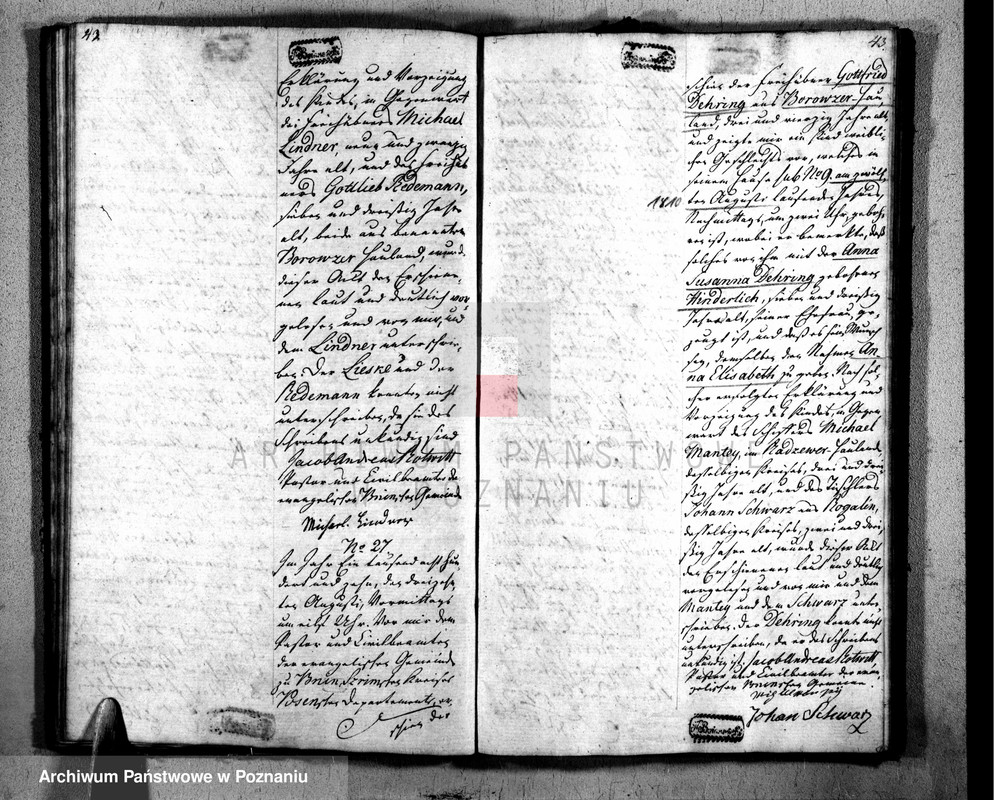 42
Erklärung und Vorzeigung
des Kindes, in Gegenwart
des Freihübners Michael
Lindner, neun und zwanzig
Jahre alt, und des Freihüb
ners Gottlieb Redemann,
sieben und dreißig Jahr
alt, beide aus benannten
Borowzer Hauland, wurde
dieser Act den Erschiene-
nen laut und deutlich vor-
gelesen und von mir, und
dem Lindner unterschrie-
ben. Der Lieske und der
Redemann konnten nicht
unterschreiben, da sie des
Schreibens unkundig sind
Jacob Andreas Rotwitt
Pastor und Civilbeamter der
evangelischen Bninschen Gemeinde
Michael Lindner
No 27
Im Jahr Ein tausend acht hun
dert und zehn, den dreizehn-
ten Augusti, Vormittags
um eilf Uhr. Vor mir dem
Pastor und Civilbeamten
der evangelischen Gemeinde
zu Bnin, Szrimschen Kreises
Posenschen Departements, er-
schien der
43
schien der Freihübner Gottfried
Dehring aus Borowzer-Hau
land, drei und vierzig Jahre alt,
und zeigte mir ein Kind weibli-
chen Geschlechts vor, welches in
seinem Hause sub No 9. am zwölf
ten Augusti laufenden Jahres,
1810
Nachmittags, um zwei Uhr, geboh-
ren ist, wobei er bemerkte, daß
solches von ihm mit der Anna
Susanna Dehring gebohrnen
Hinderlich, sieben und dreißig
Jahre alt, seiner Ehefrau, ge-
zeugt ist, und daß es sein Wunsch
sey, demselben den Nahmen An-
na Elisabeth zu geben. Nach sol-
cher erfolgten Erklärung und
Vorzeigung des Kindes, in Gegen
wart des Schiffers Michael
Mantey, im Radzewer-Hauland,
desselbigen Kreises, drei und drei-
ßig Jahre alt, und des Tischlers
Johann Schwarz aus Rogalin,
desselbigen Kreises, zwei und drei-
ßig Jahre alt, wurde dieser Act
den Erschienenen laut und deutlich
vorgelesen und von mir und dem
Mantey und dem Schwarz unter-
schrieben. Der Dehring konnte nicht
unterschreiben, da er des Schreibens
unkundig ist. Jacob Andreas Rotwitt,
Pastor und Civilbeamter der evan-
gelischen Bninschen Gemeine.
Johan Schwarz
ARCHIWUM PAŃSTWOWE
W POZNANIU
Archiwum Państwowe w Poznaniu